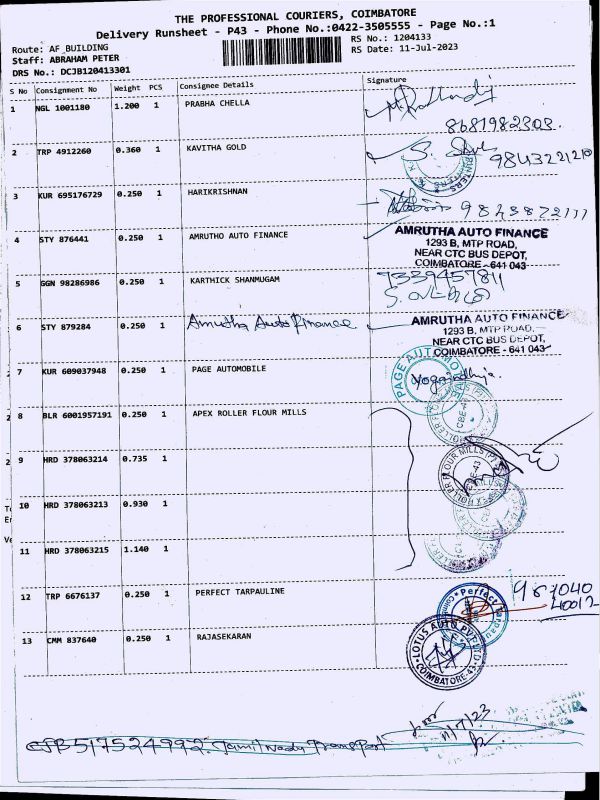 THE PROFESSIONAL COURIERS, COIMBATORE
Delivery Runsheet - P43 - Phone No.:0422-3505555 - Page No.:1
Route: AF_BUILDING
RS No.: 1204133
Staff: ABRAHAM PETER
RS Date: 11-Jul-2023
DRS No.: DCJB120413301
S No Consignment No Weight PCS Consignee Details Signature
1 NGL 1001180 1.200 1 PRABHA CHELLA
8681982303
2 TRP 4912260 0.360 1 KAVITHA GOLD
9843221210
3 KUR 695176729 0.250 1 HARIKRISHNAN
4 STY 876441 0.250 1 AMRUTHO AUTO FINANCE
AMRUTHA AUTO FINANCE
1293 B, MTP ROAD,
NEAR CTC BUS DEPOT,
COIMBATORE - 641 043
5 GGN 98286986 0.250 1 KARTHICK SHANMUGAM
7339457811
6 STY 879284 0.250 1 Amrutha Auto Finance
AMRUTHA AUTO FINANCE
1293 B, MTP ROAD,
NEAR CTC BUS DEPOT,
COIMBATORE - 641 043
7 KUR 609037948 0.250 1 PAGE AUTOMOBILE
PAGE AUTOMOTIVE
8 BLR 6001957191 0.250 1 APEX ROLLER FLOUR MILLS
9 HRD 378063214 0.735 1
10 HRD 378063213 0.930 1
11 HRD 378063215 1.140 1
12 TRP 6676137 0.250 1 PERFECT TARPAULINE
Perfect Tarpau
13 CMM 837640 0.250 1 RAJASEKARAN
LOTUS AUTO PVT LTD
COIMBATORE-43
11/7/23
517524992 Tamil Nadu Transport